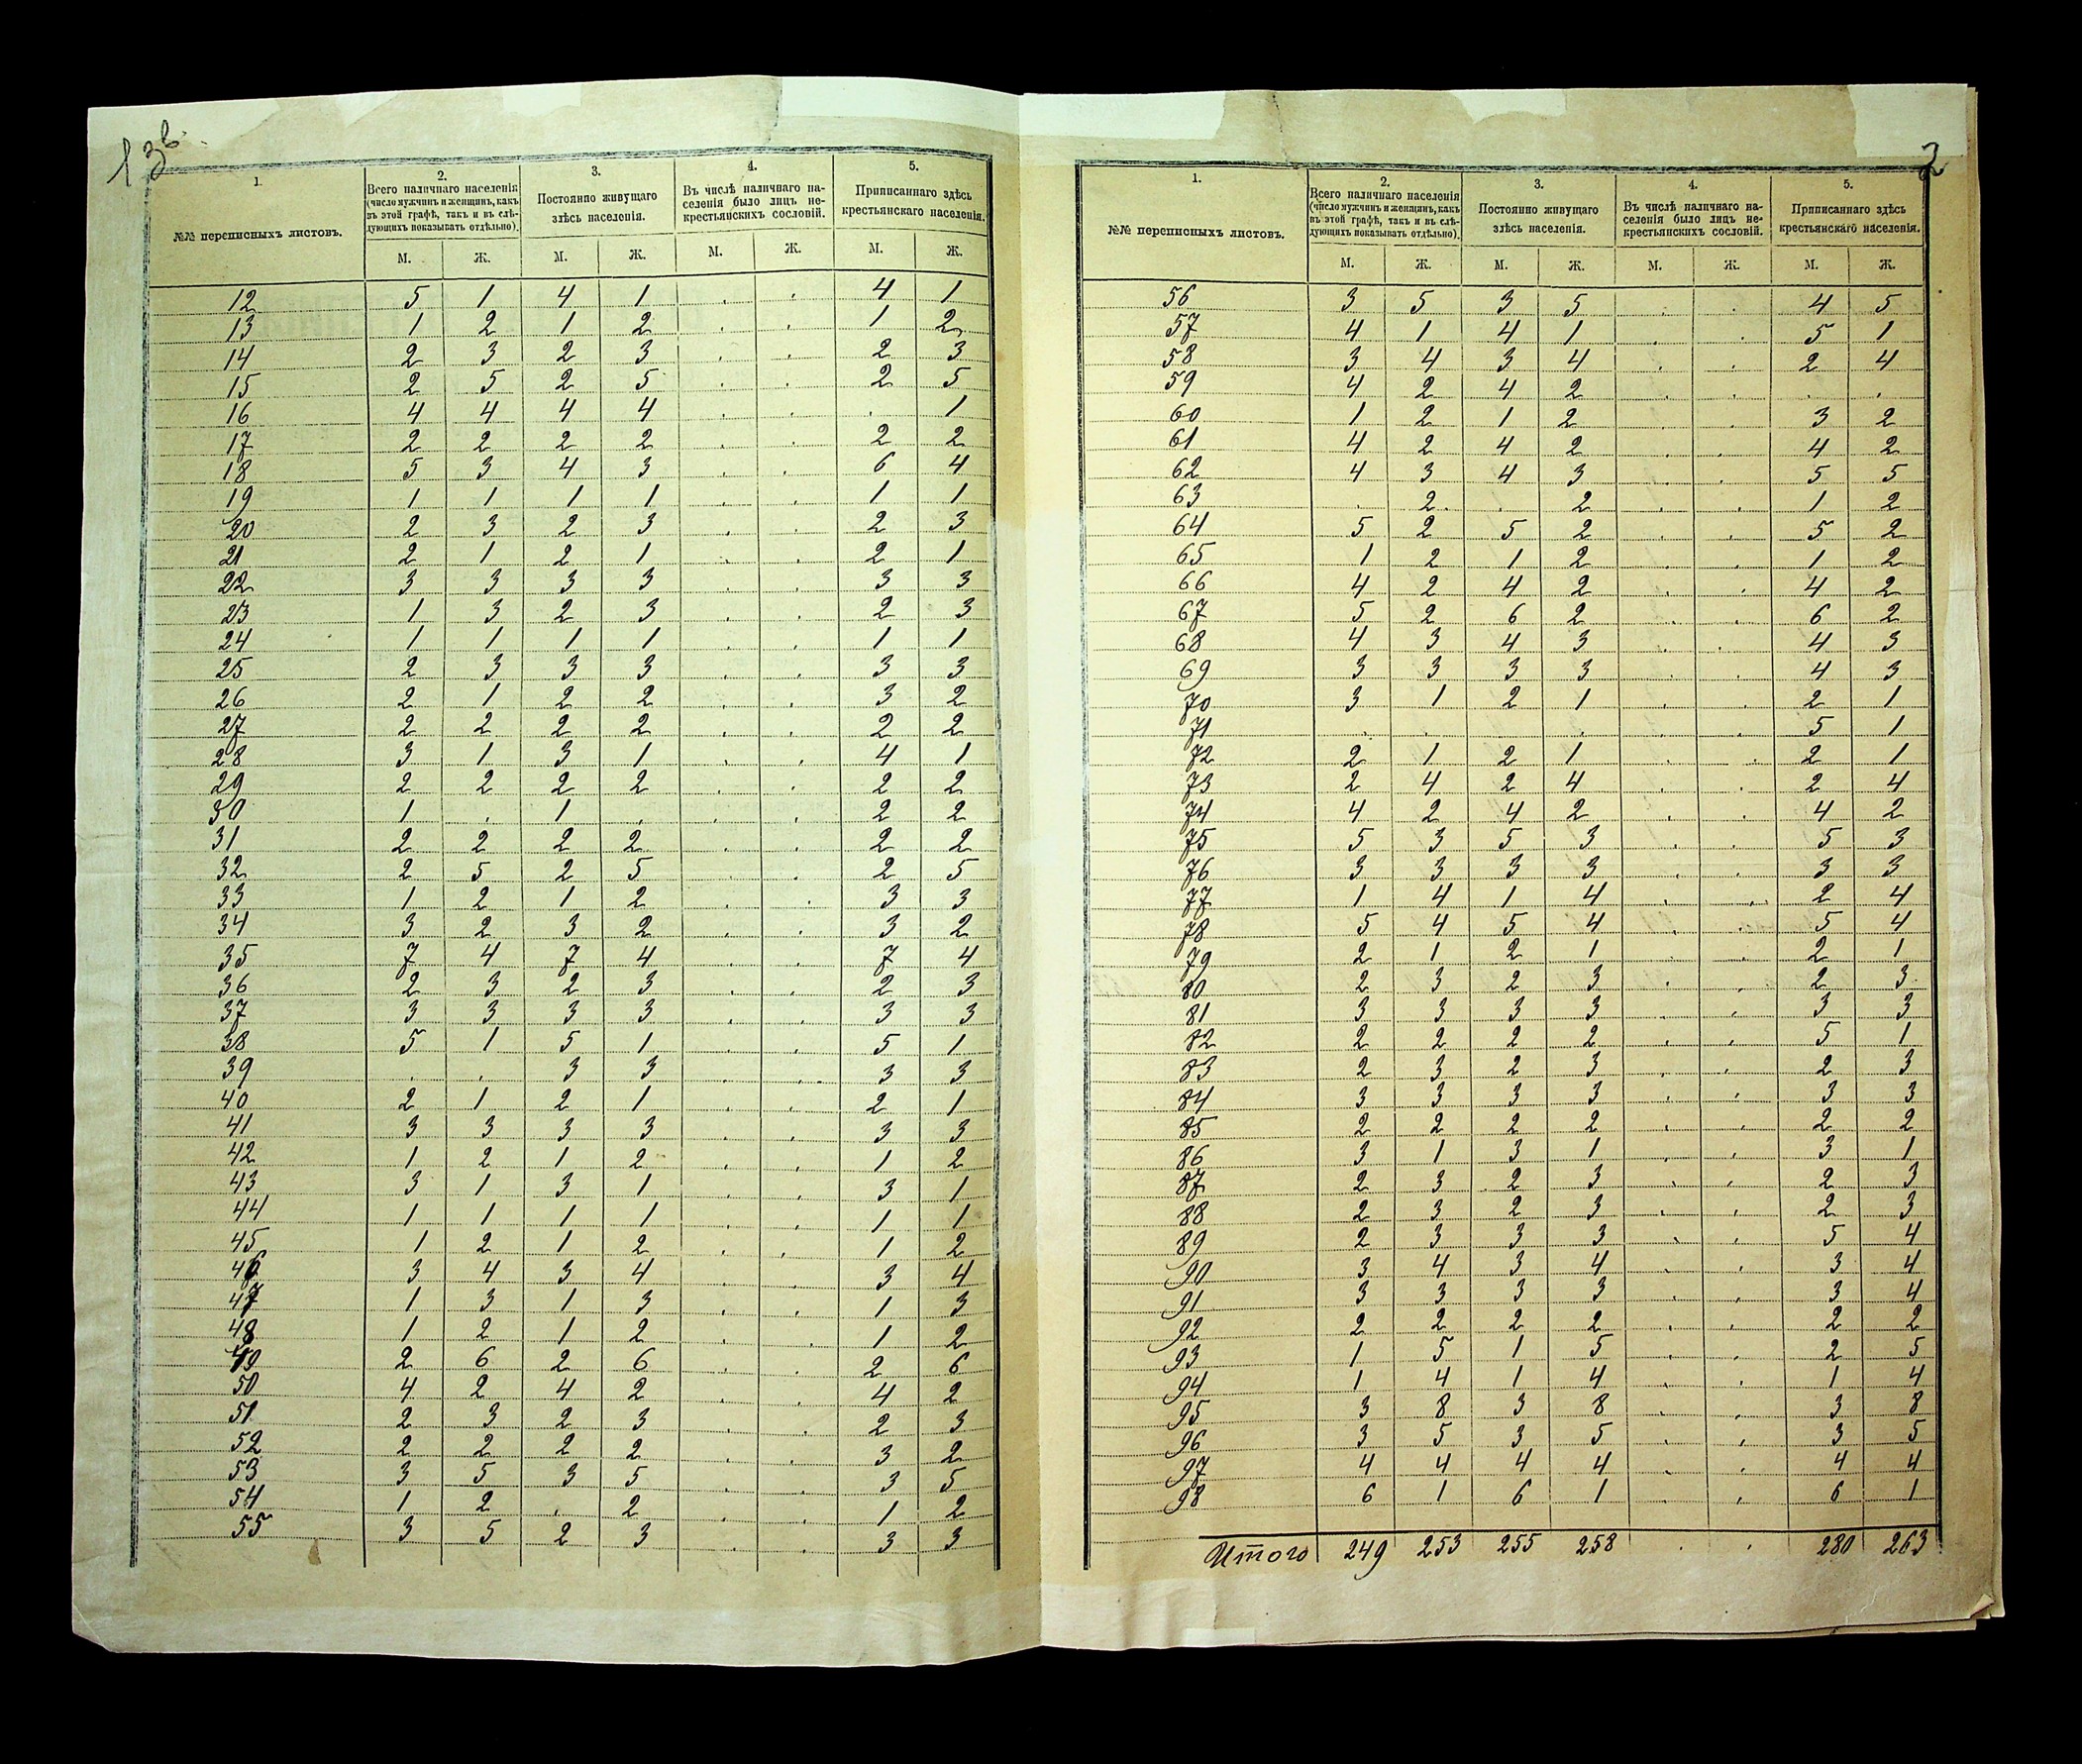 1 зв.
1. 2. 3. 4. 5.
№№ переписныхъ листовъ. Всего наличнаго населенія (число мужчинъ и женщинъ, какъ въ этой графѣ, такъ и въ слѣдующихъ показывать отдѣльно). Постоянно живущаго здѣсь населенія. Въ числѣ наличнаго населенія было лицъ не-крестьянскихъ сословій. Приписаннаго здѣсь крестьянскаго населенія.
М. Ж. М. Ж. М. Ж. М. Ж.
12 5 1 4 1 . . 4 1
13 1 2 1 2 . . 1 2
14 2 3 2 3 . . 2 3
15 2 5 2 5 . . 2 5
16 4 4 4 4 . . . 1
17 2 2 2 2 . . 2 2
18 5 3 4 3 . . 6 4
19 1 1 1 1 . . 1 1
20 2 3 2 3 . . 2 3
21 2 1 2 1 . . 2 1
22 3 3 3 3 . . 3 3
23 1 3 2 3 . . 2 3
24 1 1 1 1 . . 1 1
25 2 3 3 3 . . 3 3
26 2 1 2 2 . . 3 2
27 2 2 2 2 . . 2 2
28 3 1 3 1 . . 4 1
29 2 2 2 2 . . 2 2
30 1 . 1 . . . 2 2
31 2 2 2 2 . . 2 2
32 2 5 2 5 . . 2 5
33 1 2 1 2 . . 3 3
34 3 2 3 2 . . 3 2
35 7 4 7 4 . . 7 4
36 2 3 2 3 . . 2 3
37 3 3 3 3 . . 3 3
38 5 1 5 1 . . 5 1
39 . . 3 3 . . 3 3
40 2 1 2 1 . . 2 1
41 3 3 3 3 . . 3 3
42 1 2 1 2 . . 1 2
43 3 1 3 1 . . 3 1
44 1 1 1 1 . . 1 1
45 1 2 1 2 . . 1 2
46 3 4 3 4 . . 3 4
47 1 3 1 3 . . 1 3
48 1 2 1 2 . . 1 2
49 2 6 2 6 . . 2 6
50 4 2 4 2 . . 4 2
51 2 3 2 3 . . 2 3
52 2 2 2 2 . . 3 2
53 3 5 3 5 . . 3 5
54 1 2 . 2 . . 1 2
55 3 5 2 3 . . 3 3
2
1. 2. 3. 4. 5.
№№ переписныхъ листовъ. Всего наличнаго населенія (число мужчинъ и женщинъ, какъ въ этой графѣ, такъ и въ слѣдующихъ показывать отдѣльно). Постоянно живущаго здѣсь населенія. Въ числѣ наличнаго населенія было лицъ не-крестьянскихъ сословій. Приписаннаго здѣсь крестьянскаго населенія.
М. Ж. М. Ж. М. Ж. М. Ж.
56 3 5 3 5 . . 4 5
57 4 1 4 1 . . 5 1
58 3 4 3 4 . . 2 4
59 4 2 4 2 . . . .
60 1 2 1 2 . . 3 2
61 4 2 4 2 . . 4 2
62 4 3 4 3 . . 5 5
63 . 2 . 2 . . 1 2
64 5 2 5 2 . . 5 2
65 1 2 1 2 . . 1 2
66 4 2 4 2 . . 4 2
67 5 2 6 2 . . 6 2
68 4 3 4 3 . . 4 3
69 3 3 3 3 . . 4 3
70 3 1 2 1 . . 2 1
71 . . . . . . 5 1
72 2 1 2 1 . . 2 1
73 2 4 2 4 . . 2 4
74 4 2 4 2 . . 4 2
75 5 3 5 3 . . 5 3
76 3 3 3 3 . . 3 3
77 1 4 1 4 . . 2 4
78 5 4 5 4 . . 5 4
79 2 1 2 1 . . 2 1
80 2 3 2 3 . . 2 3
81 3 3 3 3 . . 3 3
82 2 2 2 2 . . 5 1
83 2 3 2 3 . . 2 3
84 3 3 3 3 . . 3 3
85 2 2 2 2 . . 2 2
86 3 1 3 1 . . 3 1
87 2 3 2 3 . . 2 3
88 2 3 2 3 . . 2 3
89 2 3 3 3 . . 5 4
90 3 4 3 4 . . 3 4
91 3 3 3 3 . . 3 4
92 2 2 2 2 . . 2 2
93 1 5 1 5 . . 2 5
94 1 4 1 4 . . 1 4
95 3 8 3 8 . . 3 8
96 3 5 3 5 . . 3 5
97 4 4 4 4 . . 4 4
98 6 1 6 1 . . 6 1
Итого 249 253 255 258 . . 280 263